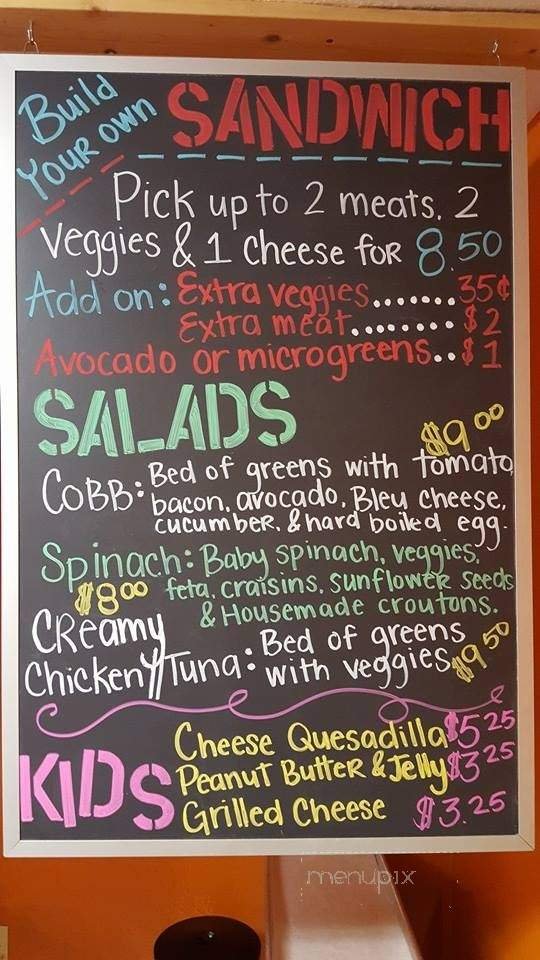 Build Your Own SANDWICH
Pick up to 2 meats, 2
Veggies & 1 Cheese for 8.50
Add on: Extra veggies......35¢
Extra meat........$2
Avocado or microgreens..$1
SALADS
$9.00
Cobb: Bed of greens with tomato,
bacon, avocado, Bleu cheese,
cucumber, & hard boiled egg.
Spinach: Baby spinach, veggies,
$8.00 feta, craisins, sunflower seeds
& Housemade croutons.
Creamy
Chicken/Tuna: Bed of greens
with veggies $9.50
KIDS
Cheese Quesadilla $5.25
Peanut Butter & Jelly $3.25
Grilled Cheese $3.25
menupix